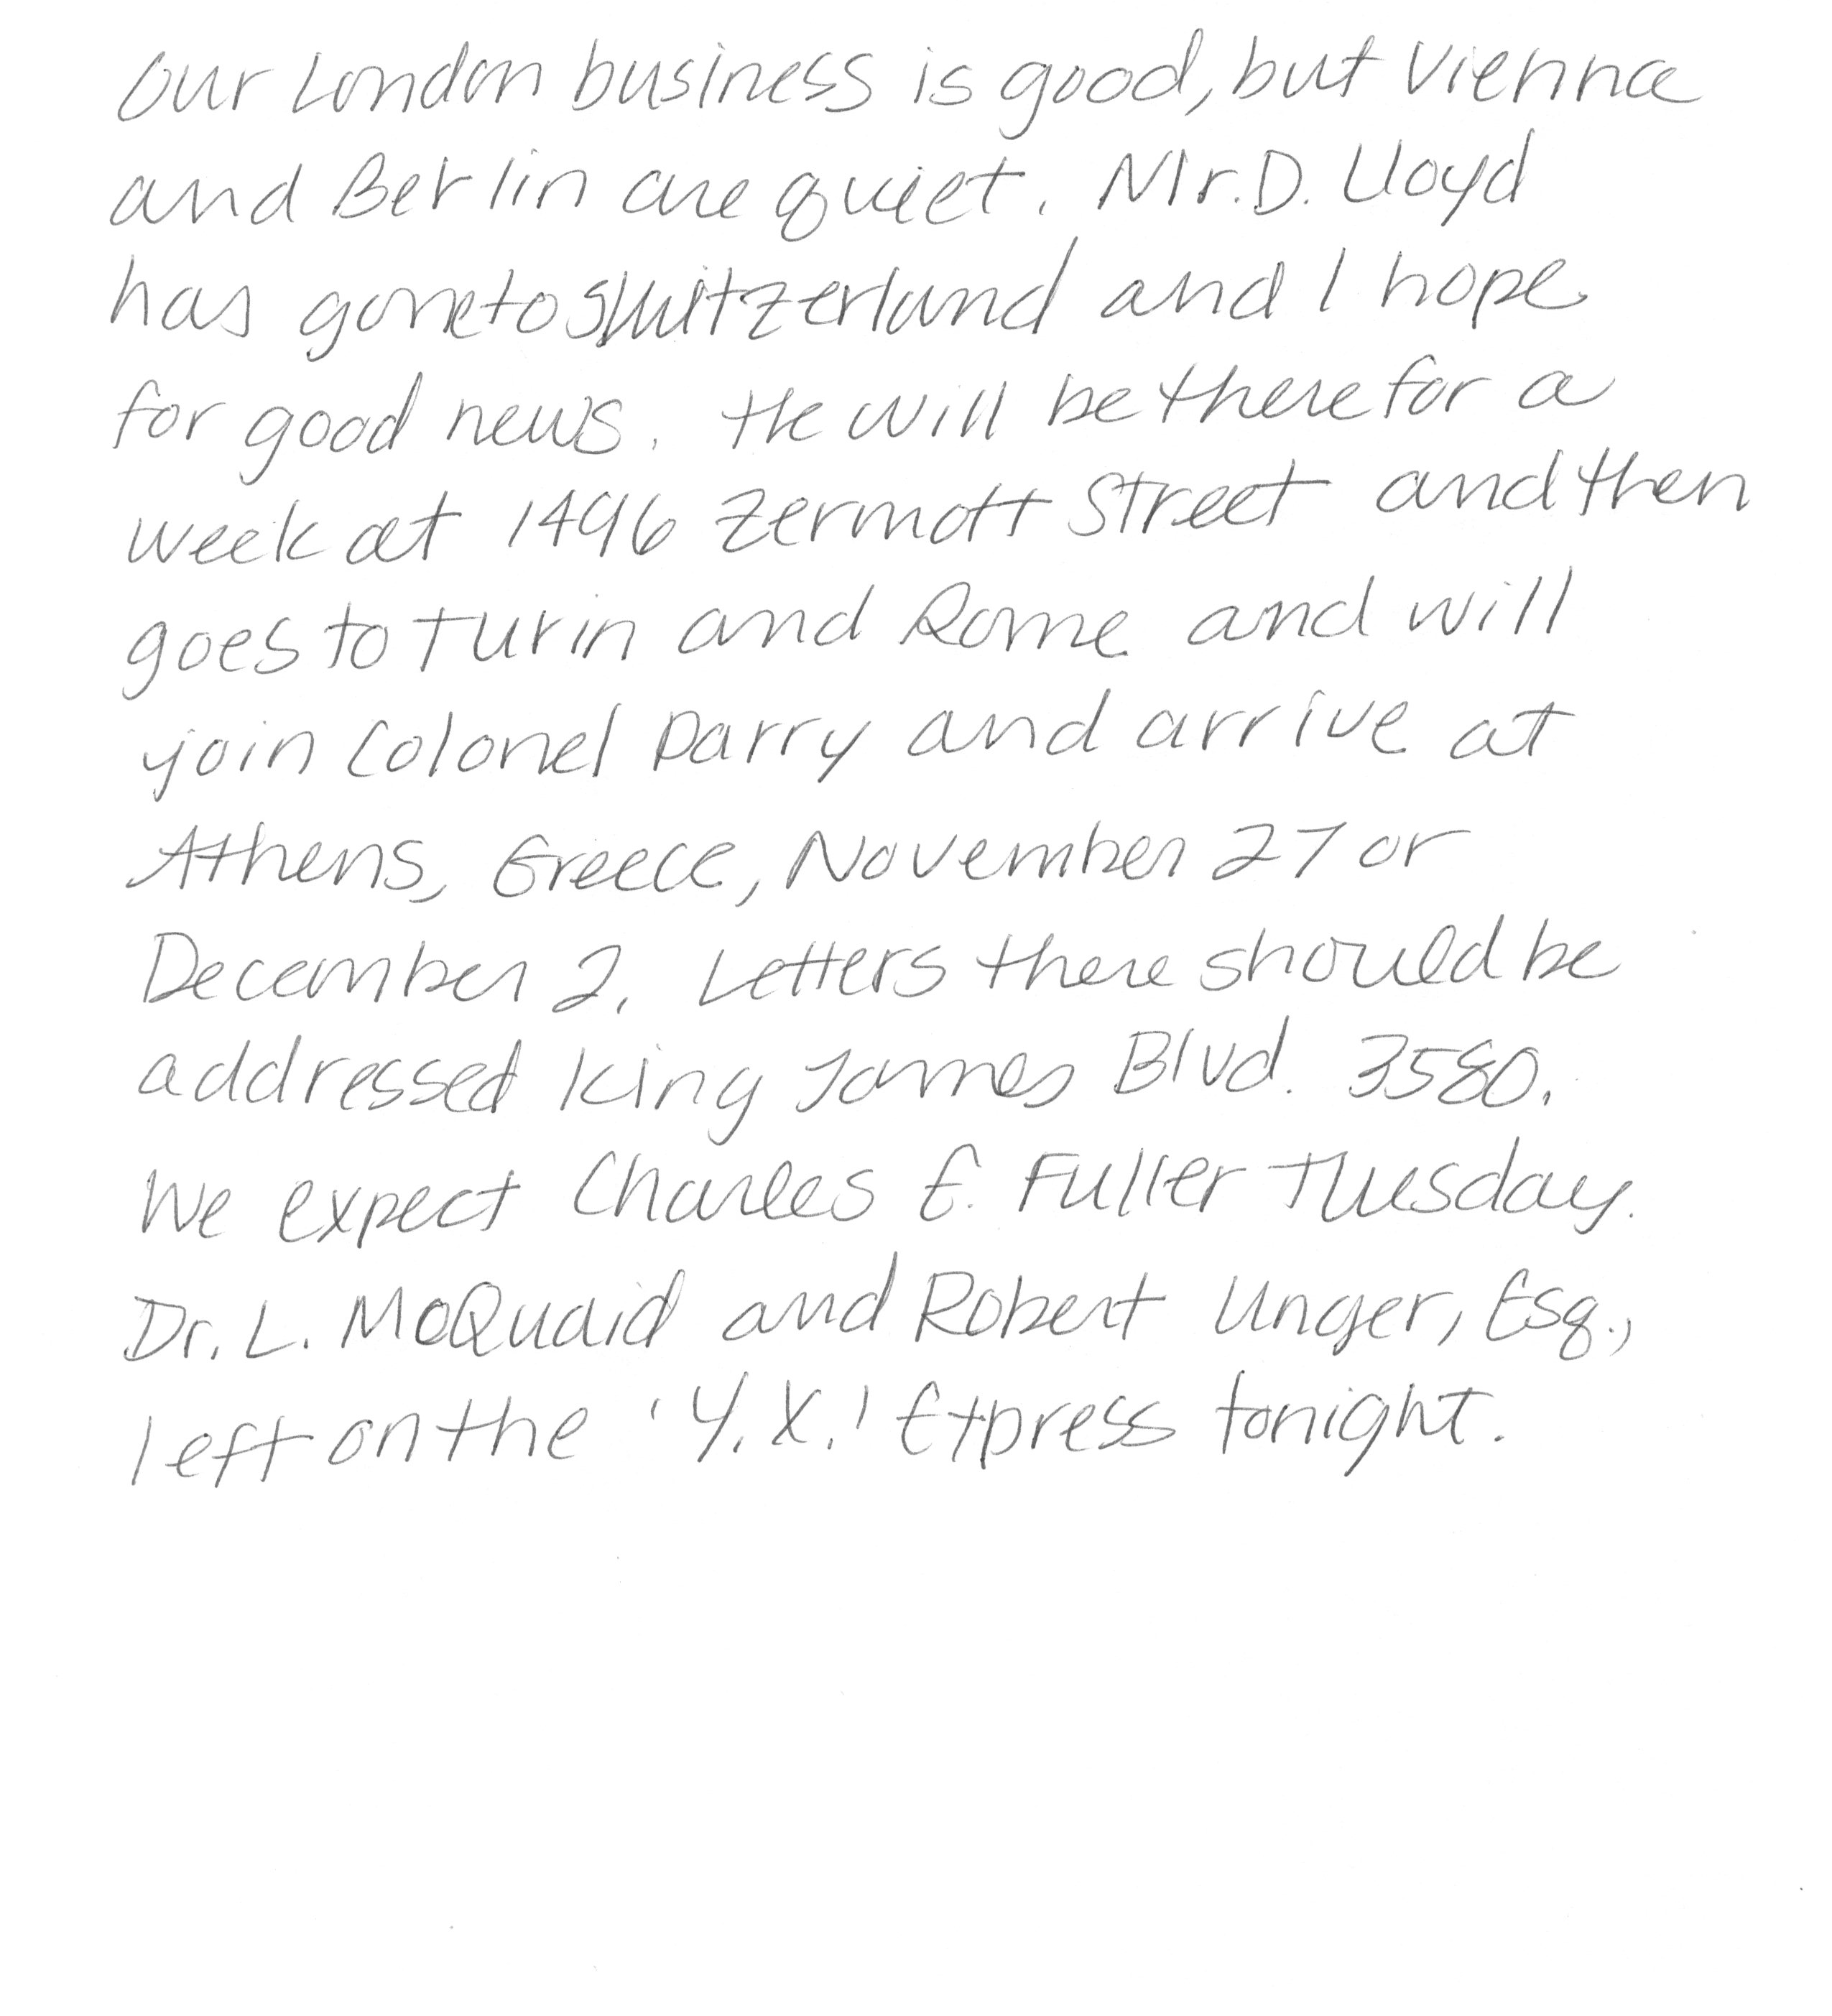 Our London business is good, but Vienna
and Berlin are quiet. Mr. D. Lloyd
has gone to Switzerland and I hope
for good news. He will be there for a
week at 1496 Zermott Street and then
goes to Turin and Rome and will
join Colonel Parry and arrive at
Athens, Greece, November 27 or
December 2. Letters there should be
addressed King James Blvd. 3580.
We expect Charles E. Fuller Tuesday.
Dr. L. McQuaid and Robert Unger, Esq.,
left on the 'Y.X.' Express tonight.